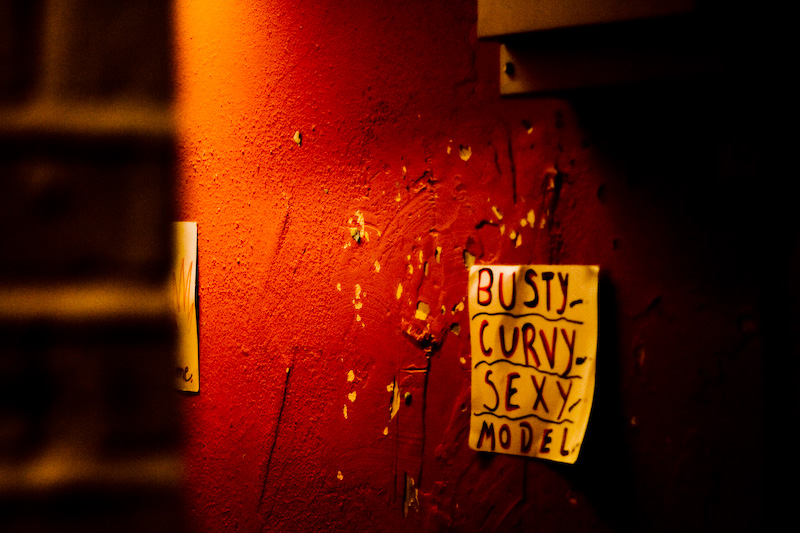 BUSTY
CURVY
SEXY
MODEL